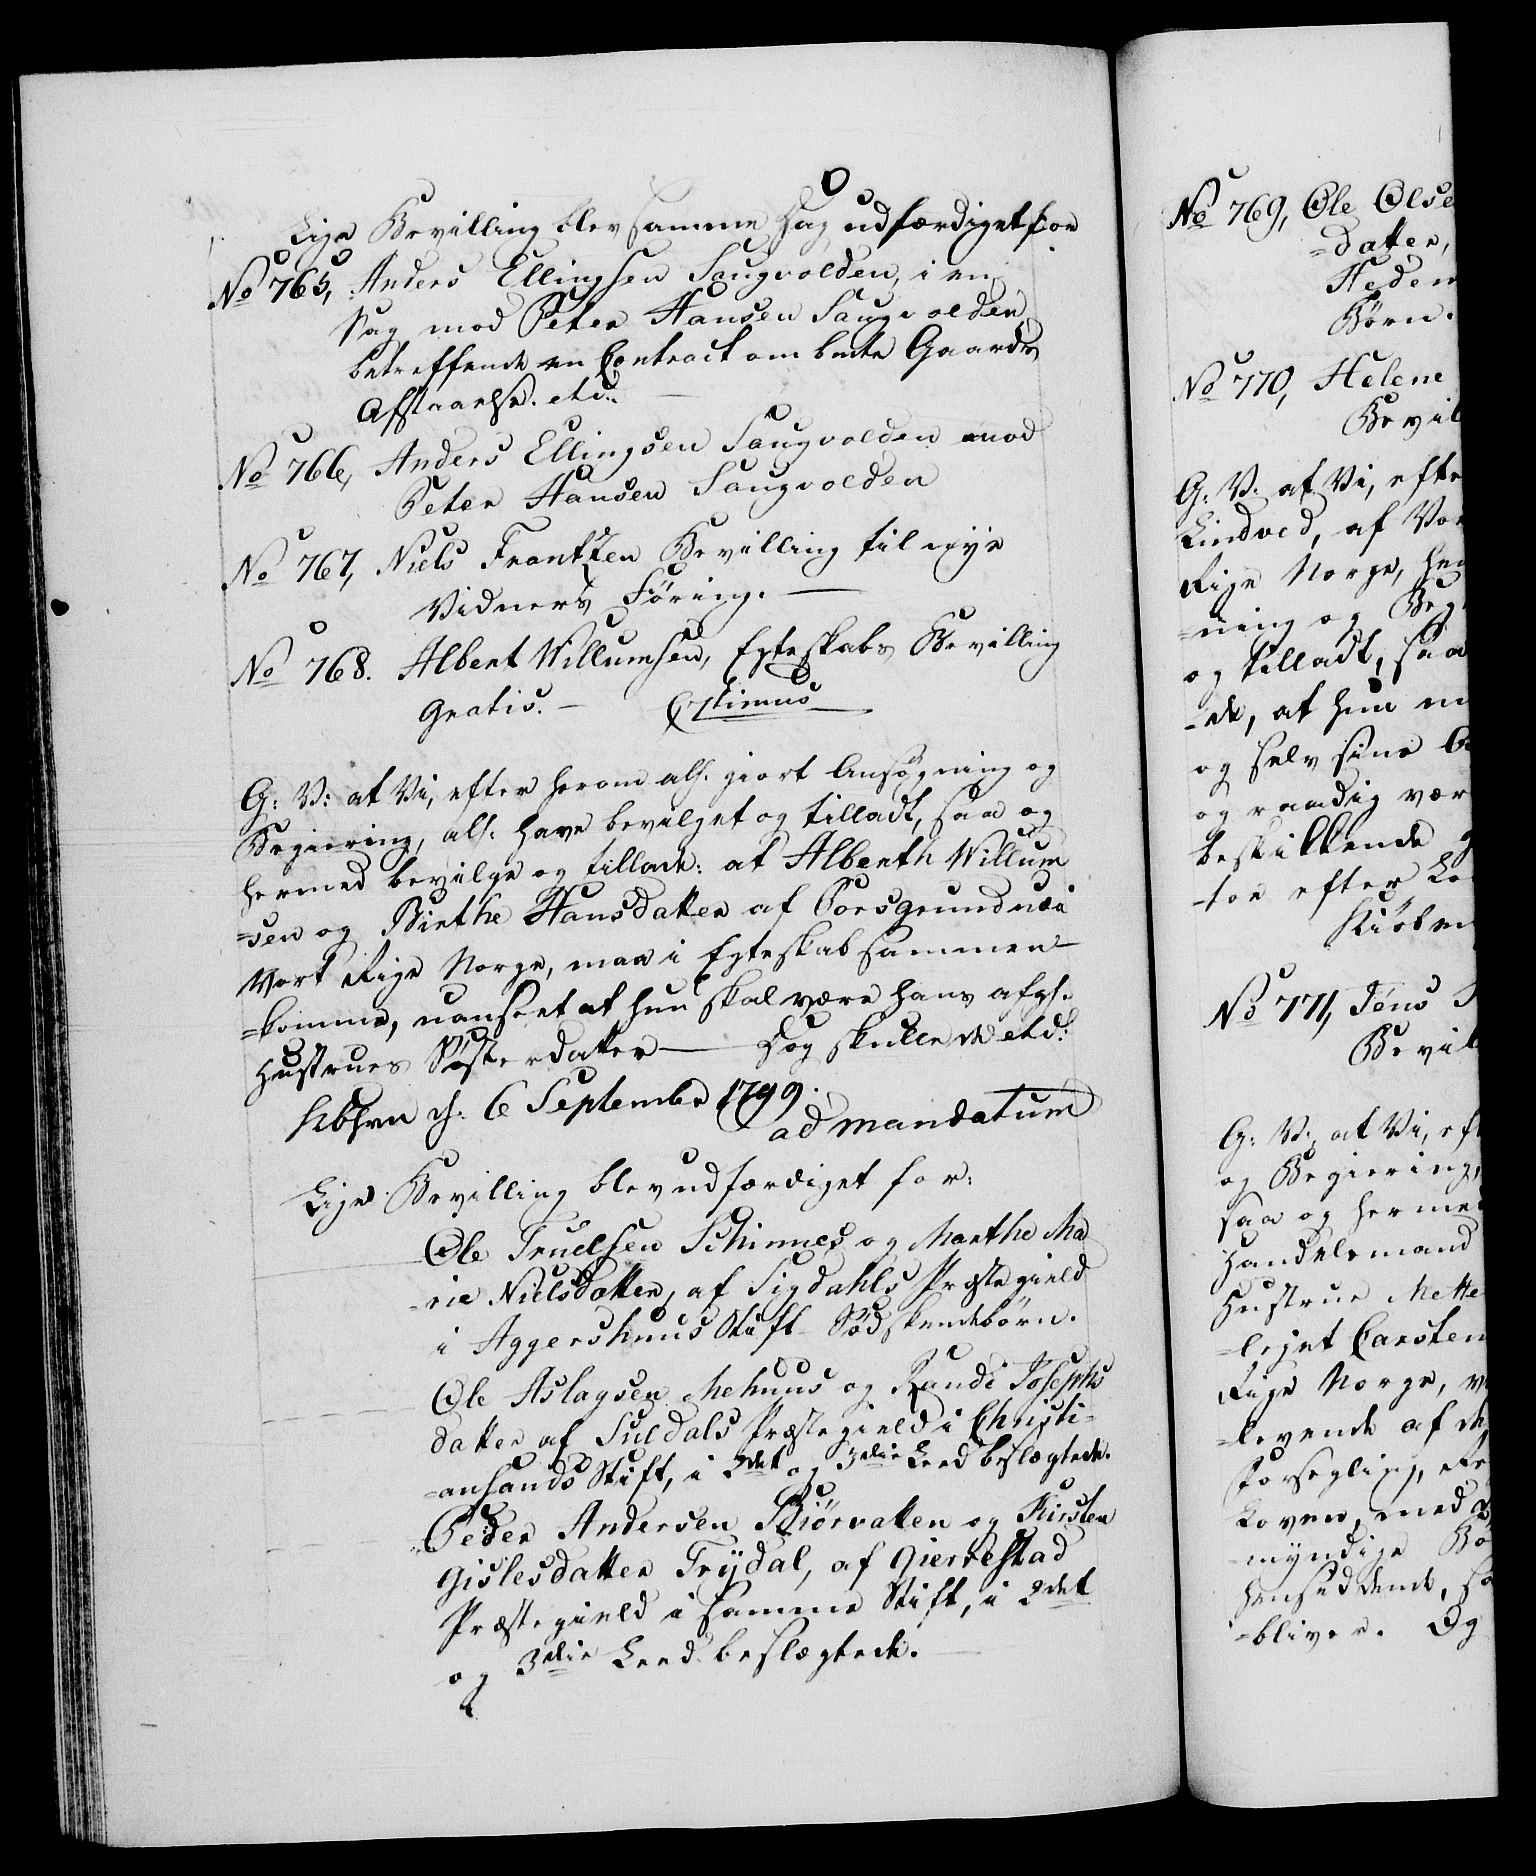 Lige Bevilling blev samme Dag udfærdiget for
No 765, Anders Ellingsen Saugvolden, i en
Sag mod Peter Hansen Saugvolden
betreffende en Contract om bmte Gaards
Afstaaelse. etc:
No 766, Anders Ellingsen Saugvolden mod
Peter Hansen Saugvolden
No 767, Niels Frantzen Bevilling til nye
Vidners Føring. —
No 768. Albert Willumsen, Egteskabs Bevilling
Gratis. —
G: V: at Vi, efter herom all. giort Ansøgning og
Begiering, all: have bevilget og tilladt, saa og
hermed bevilge og tillade: at Alberth Willum
=sen og Birthe Hansdatter af Porsgrund udi
Vort Rige Norge, maa i Egteskab sammen-
=komme, uanseet at hun skal være hans afgl.
Hustrues Søsterdatter — Dog skulle de etc:
Kbhvn d. 6 September 1799.
ad mandatum
Lige Bevilling blev udfærdiget for:
Ole Truelsen Schinnes og Marthe Ma
=rie Nielsdatter, af Sigdahls Præstegield
i Aggershuus Stift Södskendebörn.
Ole Aslagsen Mehuus og Randi Josephs
datter af Suldals Præstegield i Christi=
=ansands Stift, i 2det og 3die Leed beslægtede.
Peder Andersen Skiörvatten og Kirsten
Gislesdatter Trydal, af Gierrestad
Præstegield i samme Stift, i 2det
og 3die Leed beslægtede. —
No 769, Ole Olse
=datter,
Hedem
Børn.
No 770, Helene
Bevil
G: V: at Vi, efte
Lindved, af Vor
Rige Norge, hen
=ning og Beg
og tilladt, saa
=de, at hun m
og selv sine
og raadig vær
beskikkende
=tor efter Lo
Kiøben
No 771, Jens
Bevil
G: V: at Vi, ef
og Begiering,
saa og hermed
Handelsmand
Hustrue Mette
=leget Carsten
Rige Norge, v
=levende af de
Forsegling, Re
Loven, med
myndige Bø
hensiddende, sa
=bliver. Og